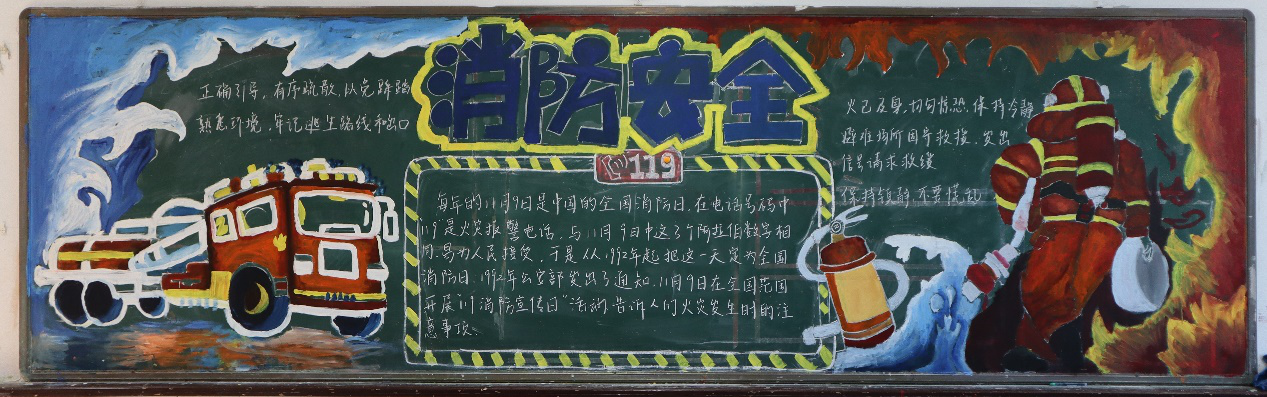 消防安全
正确引导,有序疏散,以免踩踏
熟悉环境,牢记逃生路线和出口
119
每年的11月9日是中国的全国消防日,在电话号码中
119是火灾报警电话,与11月9日中这3个阿拉伯数字相
同,易为人民接受,于是从1992年起把这一天定为全国
消防日.1992年公安部发出了通知.11月9日在全国范围
开展"119消防宣传日"活动,告诉人们火灾发生时的注
意事项、
火已及身,切勿惊恐,保持冷静
避难场所固守救援,发出
信号请求救援
保持镇静,不要慌乱